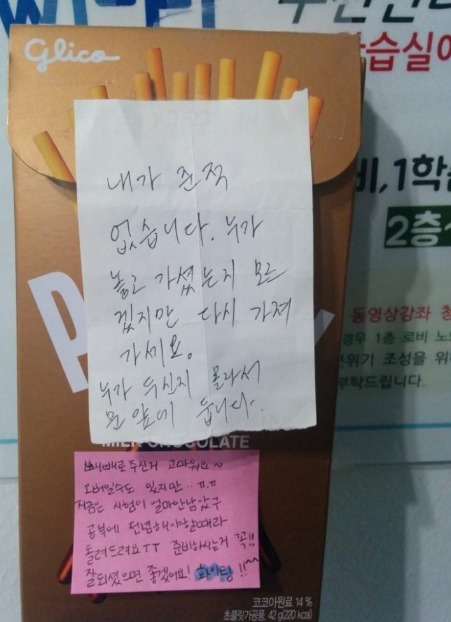 Glico
습실
내가 준적
없습니다. 누가
놓고 가셨는지 모르
겠지만 다시 가져
가세요.
누가 두신지 몰라서
문앞에 둡니다.
비, 1학
2층
동영상강좌 청
경우 1층 로비 노
분위기 조성을 위
부탁드립니다.
MILK CHOCOLATE
빼빼로 두신거 고마워요~
오버일수도 있지만..ㅠㅠ
저금은 시험이 얼마안남았구
공부에 전념해야할때라
돌려드려요TT 준비하시는거 꼭!!
잘되셨으면 좋겠어요! 화이팅!!^^
코코아원료 14%
초콜릿가공품 42g(220 kcal)